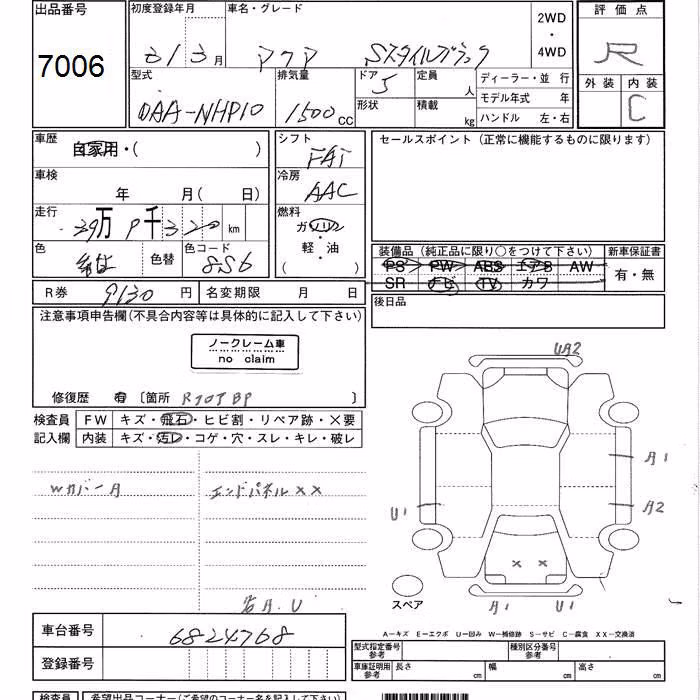 出品番号
7006
初度登録年月
31 3 月
車名・グレード
アクア Sスタイルブラック
2WD
・
4WD
評価点
R
外装 内装
C
型式
DAA-NHP10
排気量
1500 CC
ドア 5
形状
定員 人
積載 kg
ディーラー・並行
モデル年式 年
ハンドル 左・右
車歴
自家用・( )
車検
年 月( 日)
走行
万 9千320 km
色
色替
色コード
シフト
FAT
冷房
AAC
燃料
ガソリン
・
軽・油
( )
セールスポイント(正常に機能するものに限ります)
装備品(純正品に限り○をつけて下さい)
PS PW ABS エアB AW
SR ナビ TV カワ
新車保証書
有・無
後日品
R券 9130 円
名変期限 月 日
注意事項申告欄(不具合内容等は具体的に記入して下さい)
ノークレーム車
no claim
修復歴 有 〔箇所 〕
検査員
記入欄
FW キズ・飛石・ヒビ割・リペア跡・×要
内装 キズ・汚レ・コゲ・穴・スレ・キレ・破レ
WカバーA
エンドパネル××
UA2
A1
A2
U1
××
A1 U1
スペア
車台番号 6824768
登録番号
A−キズ E−エクボ U−凹み W−補修跡 S−サビ C−腐食 XX−交換済
型式指定番号
参考
種別区分番号
参考
車庫証明用
参考
長さ 幅 高さ
検査員
希望出品コーナー(ご希望のコーナー名を記入して下さい)